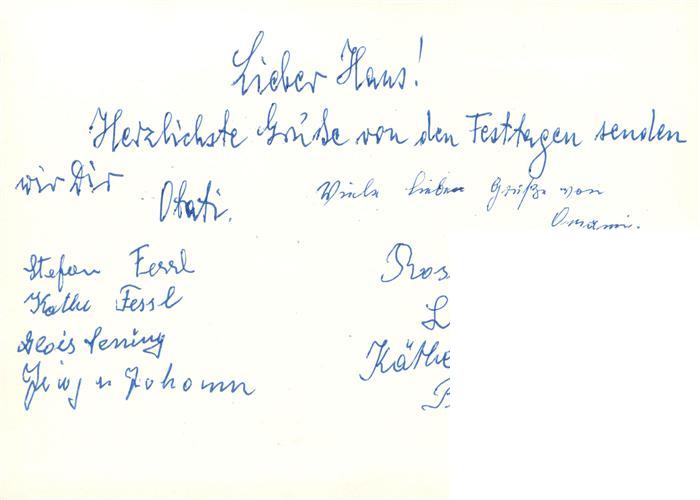 Lieber Hans!
Herzlichste Grüße von den Festtagen senden
wir Dir
Otati.
Viele liebe Grüße von
Omami.
Stefan Fessl
Käthe Fessl
Alois
Johann
Ros
L
Käthe